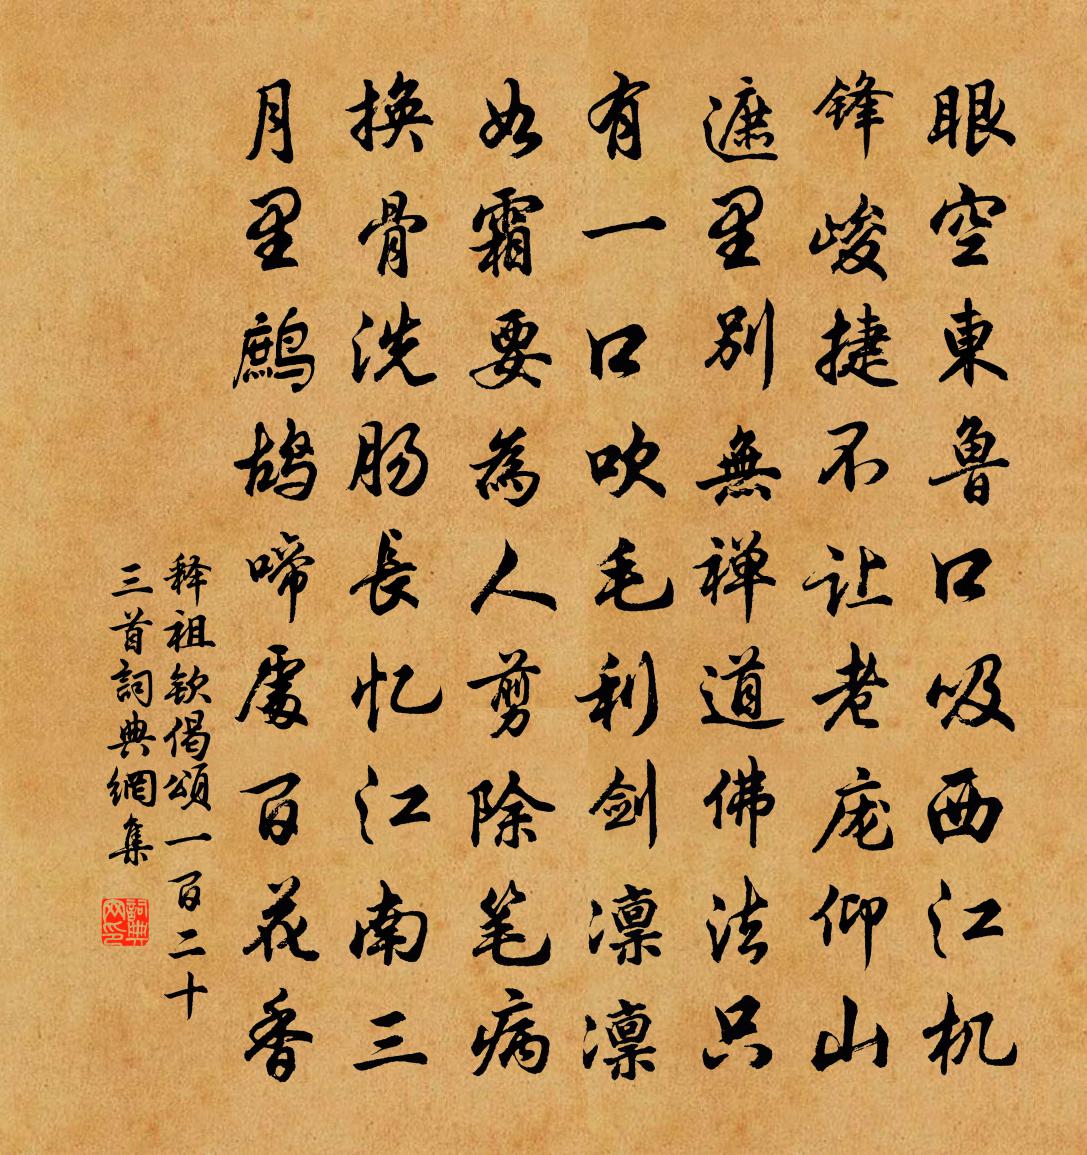 眼空東魯口吸西江机
锋峻捷不让老庞仰山
遮里别無禅道佛法只
有一口吹毛利剑凛凛
如霜要為人剪除笔病
换骨洗肠長忆江南三
月里鹧鸪啼處百花香
释祖钦偈頌一百二十
三首詞典網集
詞典网印